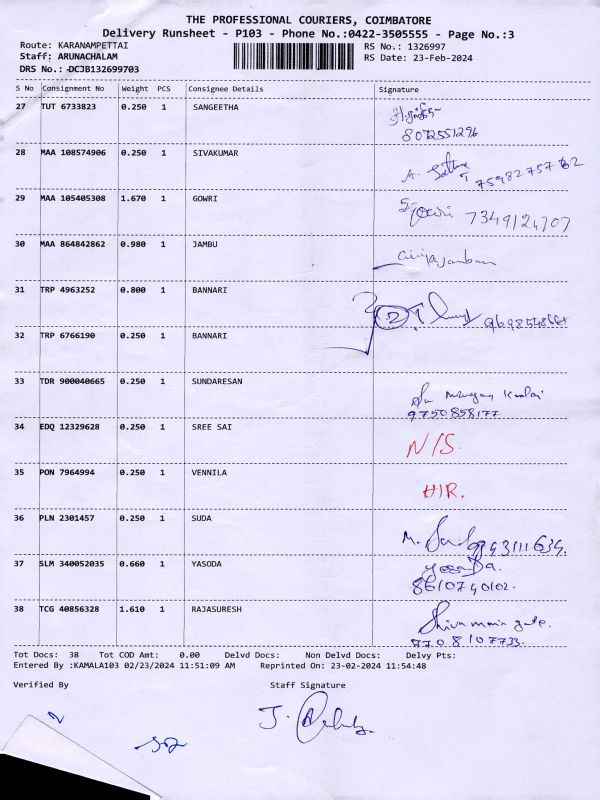 THE PROFESSIONAL COURIERS, COIMBATORE
Delivery Runsheet - P103 - Phone No.:0422-3505555 - Page No.:3
Route: KARANAMPETTAI RS No.: 1326997
Staff: ARUNACHALAM RS Date: 23-Feb-2024
DRS No.: DCJB132699703
S No Consignment No Weight PCS Consignee Details Signature
27 TUT 6733823 0.250 1 SANGEETHA
8072551296
28 MAA 108574906 0.250 1 SIVAKUMAR
29 MAA 105405308 1.670 1 GOWRI Gowri 7349124707
30 MAA 864842862 0.980 1 JAMBU
31 TRP 4963252 0.800 1 BANNARI
2
32 TRP 6766190 0.250 1 BANNARI
33 TDR 900040665 0.250 1 SUNDARESAN
9750858177
34 EDQ 12329628 0.250 1 SREE SAI N/S.
35 PON 7964994 0.250 1 VENNILA
36 PLN 2301457 0.250 1 SUDA
37 SLM 340052035 0.660 1 YASODA
8610740102.
38 TCG 40856328 1.610 1 RAJASURESH
7708107733.
Tot Docs: 38 Tot COD Amt: 0.00 Delvd Docs: Non Delvd Docs: Delvy Pts:
Entered By :KAMALA103 02/23/2024 11:51:09 AM Reprinted On: 23-02-2024 11:54:48
Verified By Staff Signature